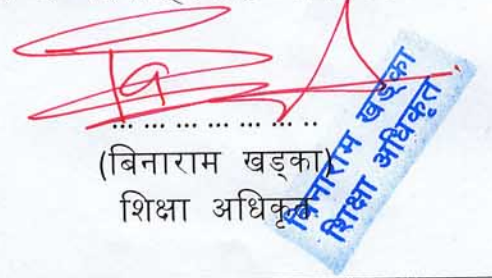 ... ... ... ... ... ... ..
(बिनाराम खड्का)
शिक्षा अधिकृत
बिनाराम खड्का
शिक्षा अधिकृत